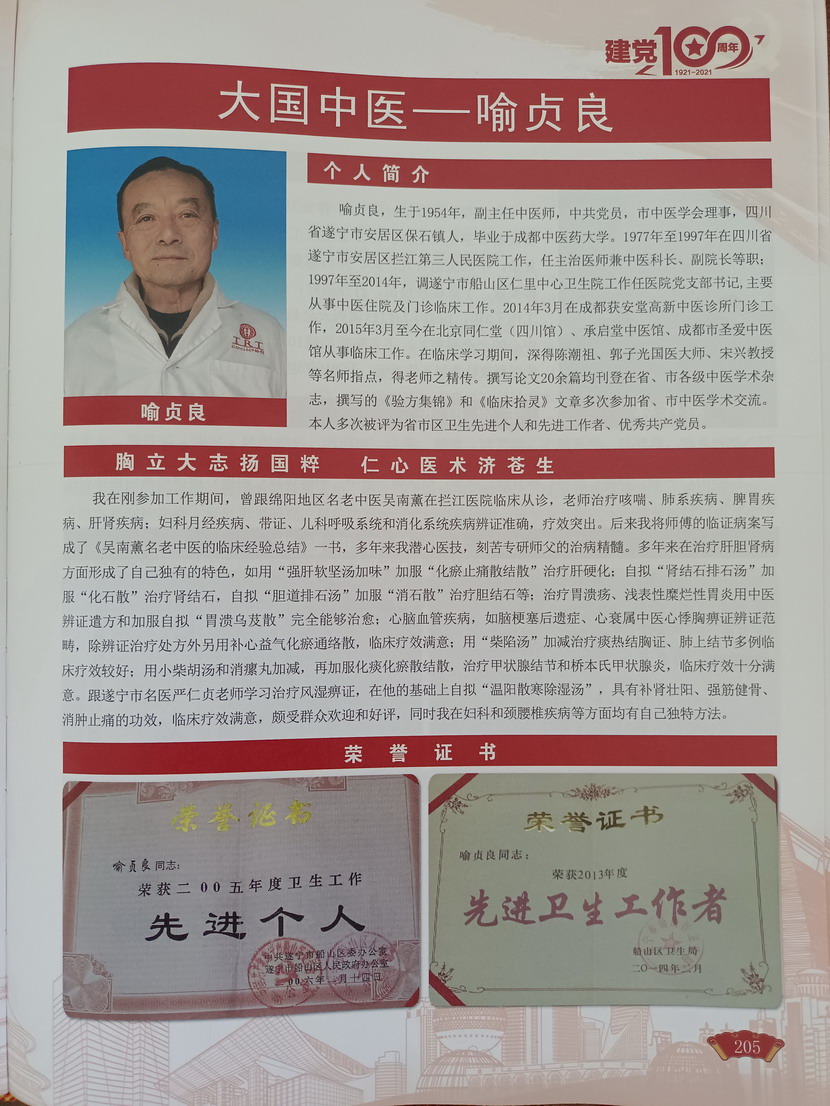 建党100周年
1921-2021
大国中医——喻贞良
个人简介
喻贞良，生于1954年，副主任中医师，中共党员，市中医学会理事，四川
省遂宁市安居区保石镇人，毕业于成都中医药大学。1977年至1997年在四川省
遂宁市安居区拦江第三人民医院工作，任主治医师兼中医科长、副院长等职；
1997年至2014年，调遂宁市船山区仁里中心卫生院工作任医院党支部书记,主要
从事中医住院及门诊临床工作。2014年3月在成都获安堂高新中医诊所门诊工
作，2015年3月至今在北京同仁堂（四川馆）、承启堂中医馆、成都市圣爱中医
馆从事临床工作。在临床学习期间，深得陈潮祖、郭子光国医大师、宋兴教授
等名师指点，得老师之精传。撰写论文20余篇均刊登在省、市各级中医学术杂
志，撰写的《验方集锦》和《临床拾灵》文章多次参加省、市中医学术交流。
本人多次被评为省市区卫生先进个人和先进工作者、优秀共产党员。
TRT
喻贞良
胸立大志扬国粹 仁心医术济苍生
我在刚参加工作期间，曾跟绵阳地区名老中医吴南薰在拦江医院临床从诊，老师治疗咳喘、肺系疾病、脾胃疾
病、肝肾疾病；妇科月经疾病、带证、儿科呼吸系统和消化系统疾病辨证准确，疗效突出。后来我将师傅的临证病案写
成了《吴南薰名老中医的临床经验总结》一书，多年来我潜心医技，刻苦专研师父的治病精髓。多年来在治疗肝胆肾病
方面形成了自己独有的特色，如用“强肝软坚汤加味”加服“化瘀止痛散结散”治疗肝硬化；自拟“肾结石排石汤”加
服“化石散”治疗肾结石，自拟“胆道排石汤”加服“消石散”治疗胆结石等；治疗胃溃疡、浅表性糜烂性胃炎用中医
辨证遣方和加服自拟“胃溃乌芨散”完全能够治愈；心脑血管疾病，如脑梗塞后遗症、心衰属中医心悸胸痹证辨证范
畴，除辨证治疗处方外另用补心益气化瘀通络散，临床疗效满意；用“柴陷汤”加减治疗痰热结胸证、肺上结节多例临
床疗效较好；用小柴胡汤和消瘰丸加减，再加服化痰化瘀散结散，治疗甲状腺结节和桥本氏甲状腺炎，临床疗效十分满
意。跟遂宁市名医严仁贞老师学习治疗风湿痹证，在他的基础上自拟“温阳散寒除湿汤”，具有补肾壮阳、强筋健骨、
消肿止痛的功效，临床疗效满意，颇受群众欢迎和好评，同时我在妇科和颈腰椎疾病等方面均有自己独特方法。
荣誉证书
荣誉证书
喻贞良同志：
荣获二00五年度卫生工作
先进个人
中共遂宁市船山区委办公室
遂宁市船山区人民政府办公室
00六年一月十四日
荣誉证书
喻贞良同志：
荣获2013年度
先进卫生工作者
船山区卫生局
二〇一四年二月
205